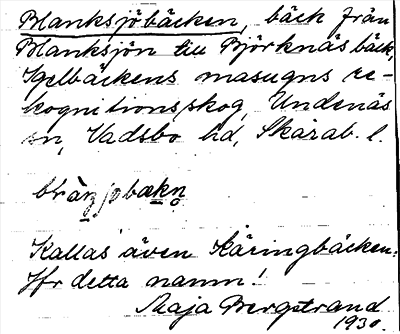 Blanksjöbäcken, bäck från
Blanksjön till Björknäs bäck,
Igelbäckens masugns re-
kognitionsskog, Undenäs
sn, Vadsbo hd, Skarab. l.
Kallas även Käringbäcken.
Jfr detta namn!
Maja Bergstrand
1930.